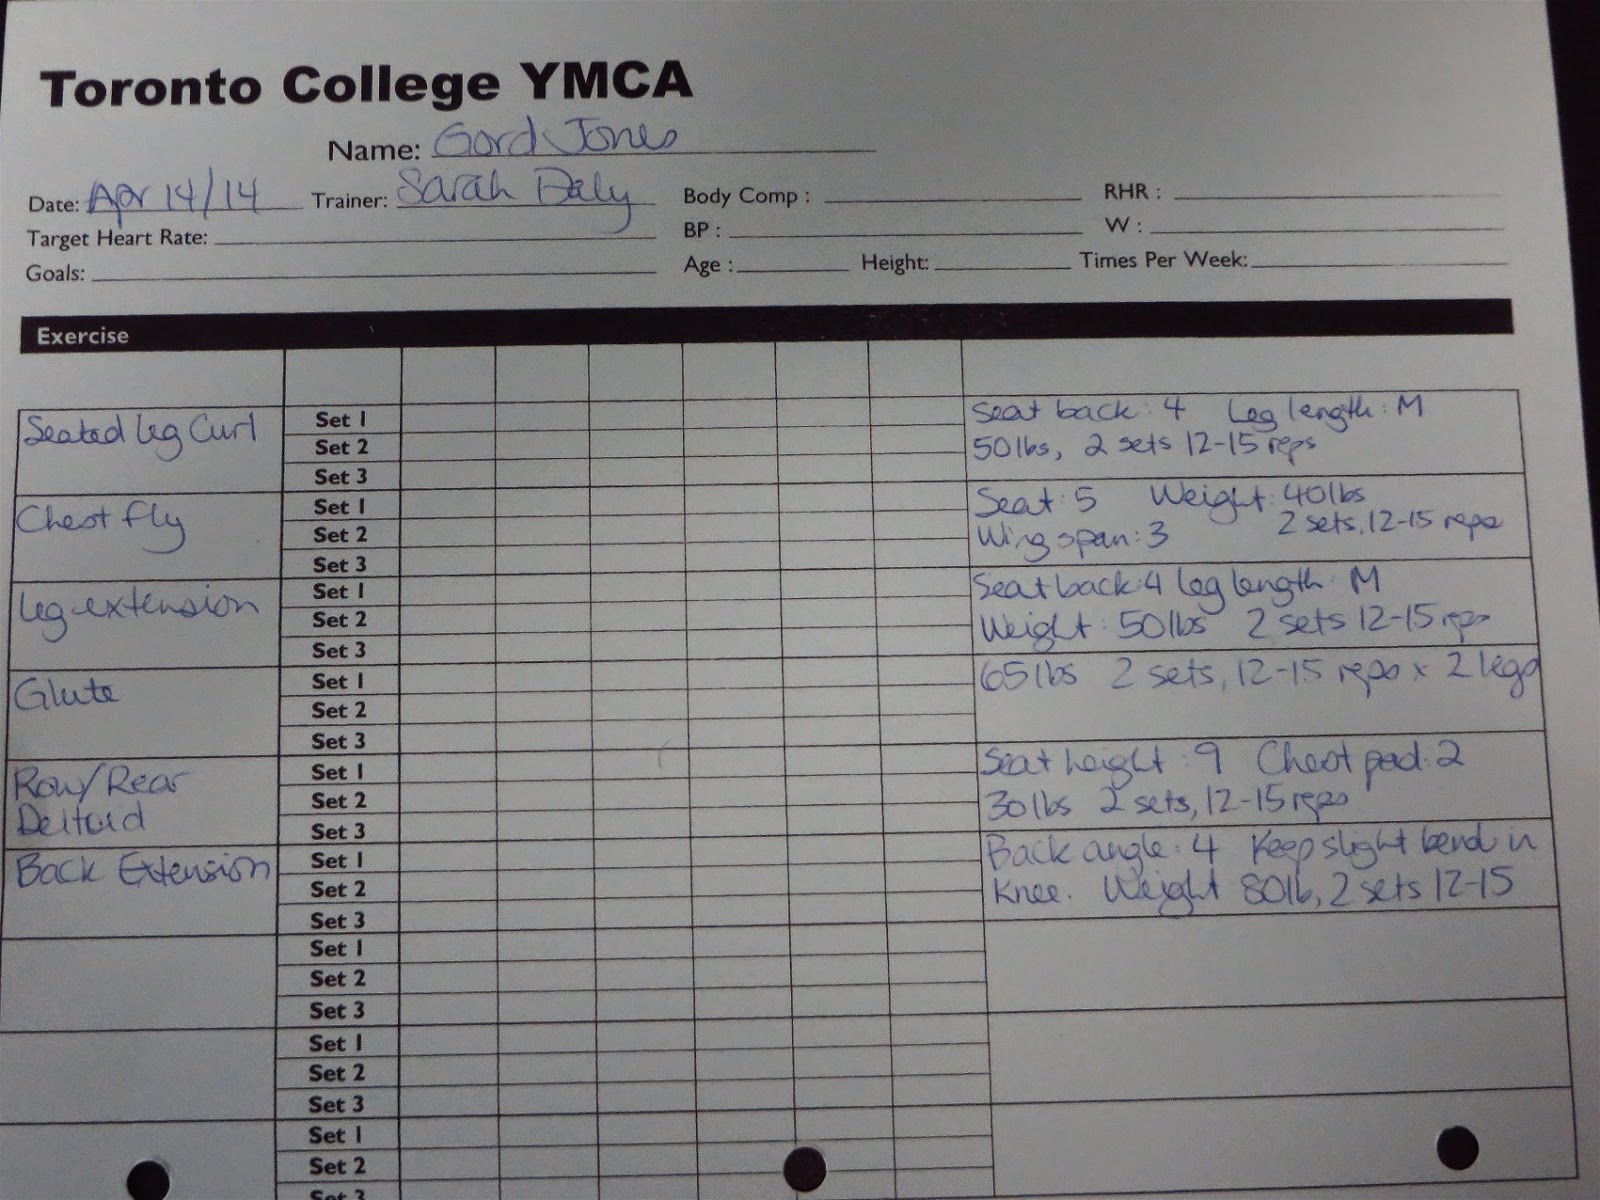 Toronto College YMCA
Name: Gord Jones
Date: Apr 14/14 Trainer: Sarah Daly Body Comp : RHR :
Target Heart Rate: BP : W :
Goals: Age : Height: Times Per Week:
Exercise
Seated leg Curl Set 1 Seat back: 4 Leg length: M
Set 2 50lbs, 2 sets 12-15 reps
Set 3
Chest fly Set 1 Seat: 5 Weight: 40lbs
Set 2 Wing span: 3 2 sets, 12-15 reps
Set 3
leg extension Set 1 Seat back: 4 leg length: M
Set 2 Weight: 50lbs 2 sets 12-15 reps
Set 3
Glute Set 1 65lbs 2 sets, 12-15 reps x 2 legs
Set 2
Set 3
Row/Rear Set 1 Seat height: 9 Chest pad: 2
Deltoid Set 2 30lbs 2 sets, 12-15 reps
Set 3
Back Extension Set 1 Back angle: 4 Keep slight bend in
Set 2 Knee. Weight 80lb, 2 sets 12-15
Set 3
Set 1
Set 2
Set 3
Set 1
Set 2
Set 3
Set 1
Set 2
Set 3